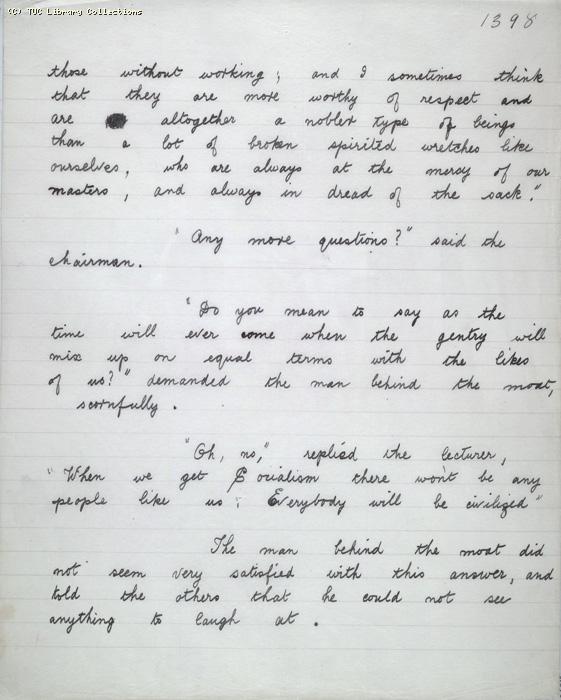 (C) TUC Library Collections
1398
those without working ; and I sometimes think
that they are more worthy of respect and
are altogether a nobler type of beings
than a lot of broken spirited wretches like
ourselves, who are always at the mercy of our
masters , and always in dread of the sack."
"Any more questions?" said the
chairman.
"Do you mean to say as the
time will ever come when the gentry will
mix up on equal terms with the likes
of us?" demanded the man behind the moat,
scornfully .
"Oh, no," replied the lecturer,
"When we get Socialism there won't be any
people like us ; Everybody will be civilized"
The man behind the moat did
not seem very satisfied with this answer, and
told the others that he could not see
anything to laugh at .